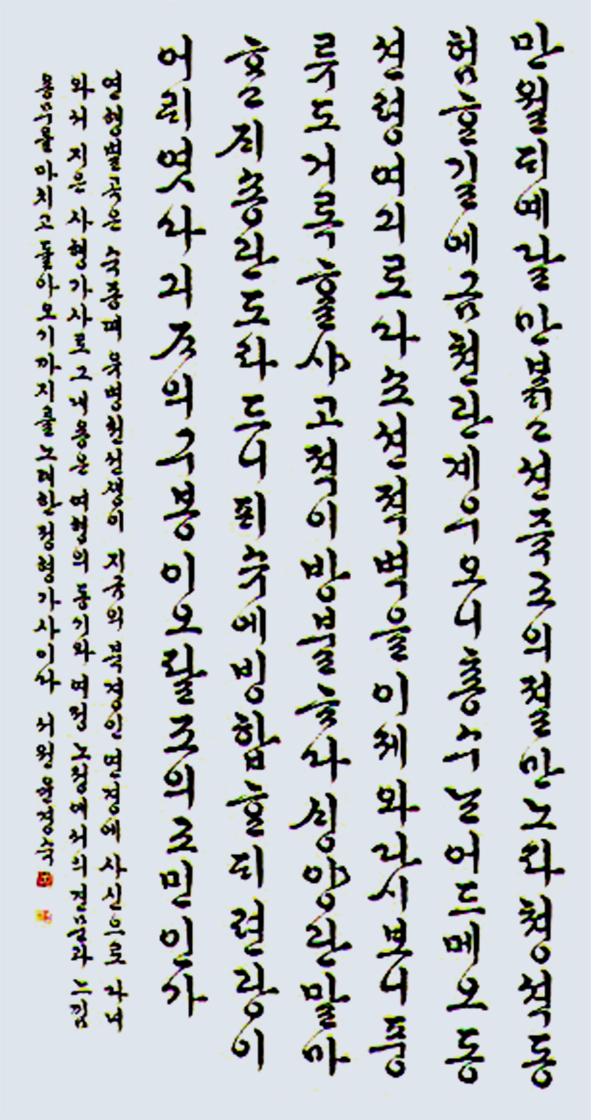 만월ᄃᆡ예달만붉고션쥭교의졀만노와쳥셕동
험ᄒᆞᆫ길에금쳔관계우오니춍슈ᄂᆞᆫ어드메오동
션령여긔로다쇼션젹벽을이제와다시보니풍
뉴도거륵ᄒᆞᆯ샤고젹이방불ᄒᆞ다싱양관말마
ᄒᆞᆯᄌᆡ춍관도와드니픠슈에빙합ᄒᆞᆫᄃᆡ련광이
어ᄃᆡ엿샤긔ᄌᆞ의구봉이오조의고민인가
연행별곡은 숙종때 유명천선생이 의 북경인 연경에 사신으로 다녀
와서 지은 사행가사로 그 내용은 여행의 동기와 여정 노정에서의 견문과 느낌
용무를 마치고 돌아오기까지를 노래한 장형가사이다 서원 윤경숙